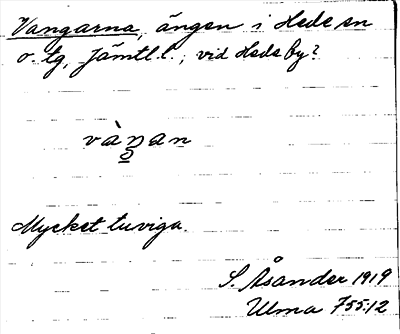 Vangarna, ängen i Hede sn
o. tg, Jämtl. l.; vid Hede by?
vàŋan
o
Mycket tuviga.
S. Åsander 1919
Ulma 755:12